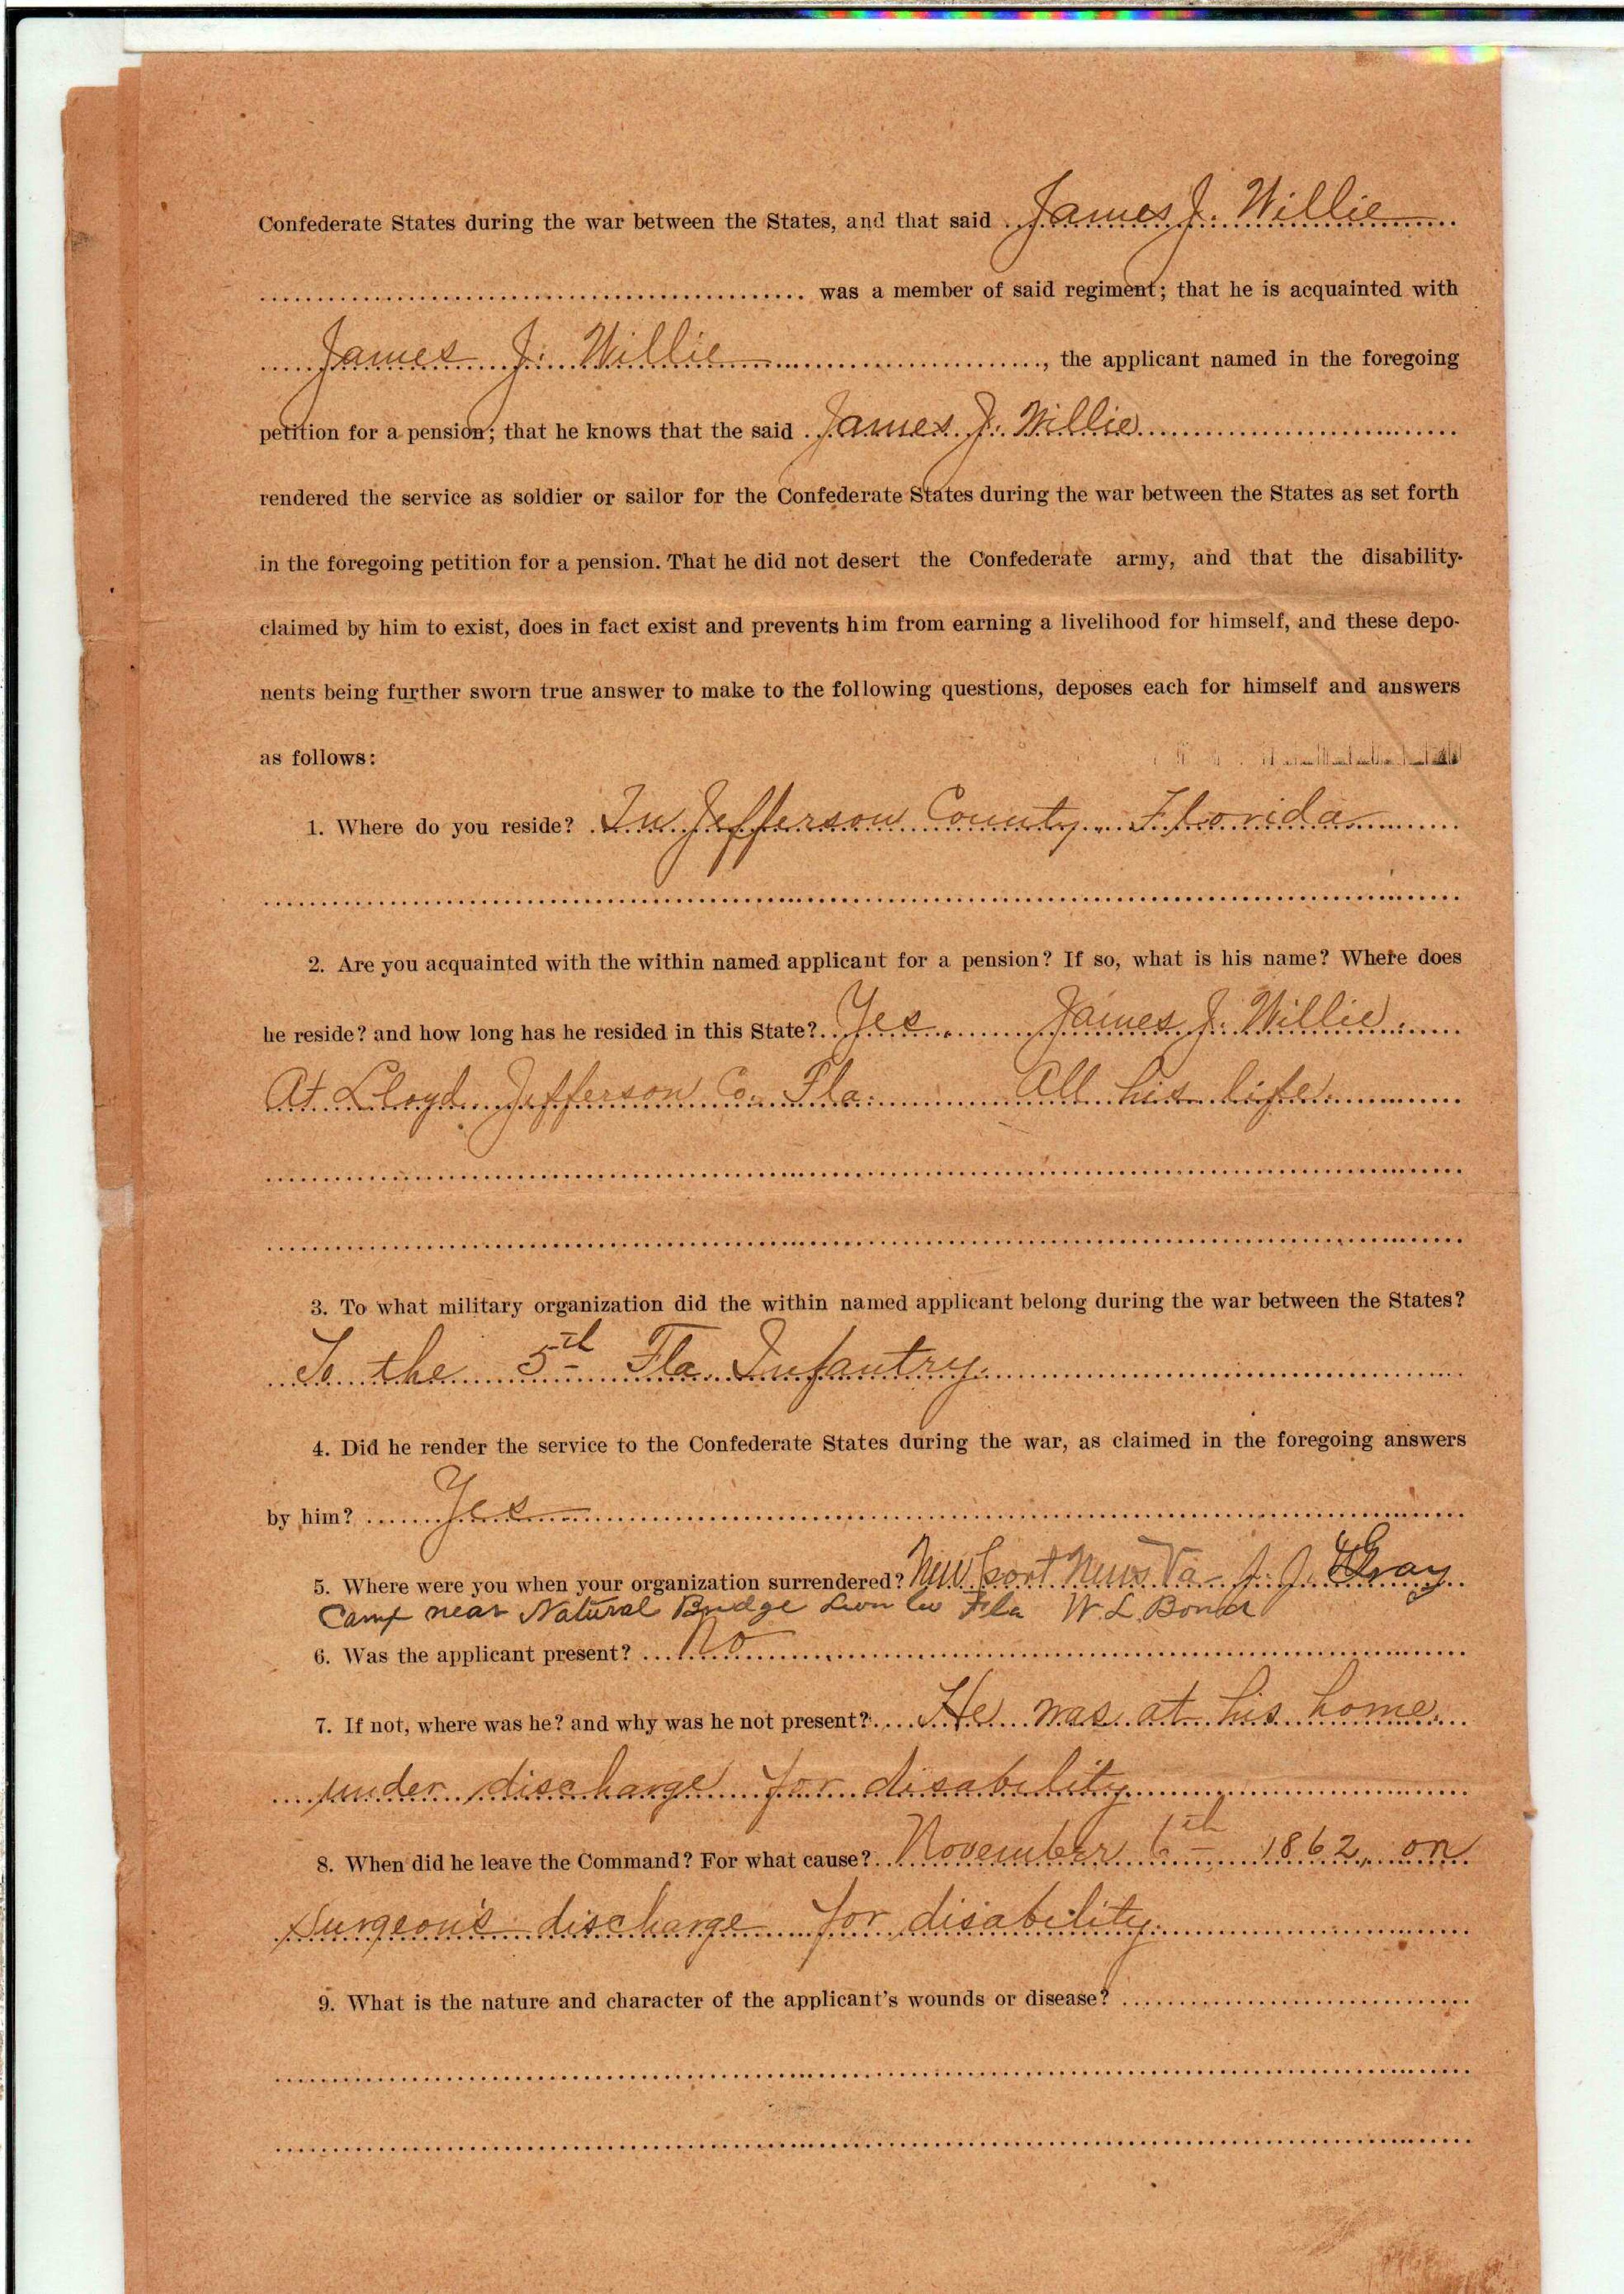 Confederate States during the war between the States, and that said James J. Willie
was a member of said regiment; that he is acquainted with
James J. Willie, the applicant named in the foregoing
petition for a pension; that he knows that the said James J. Willie
rendered the service as soldier or sailor for the Confederate States during the war between the States as set forth
in the foregoing petition for a pension. That he did not desert the Confederate army, and that the disability
claimed by him to exist, does in fact exist and prevents him from earning a livelihood for himself, and these depo-
nents being further sworn true answer to make to the following questions, deposes each for himself and answers
as follows:
1. Where do you reside? In Jefferson County, Florida
2. Are you acquainted with the within named applicant for a pension? If so, what is his name? Where does
he reside? and how long has he resided in this State? Yes. James J. Willie.
At Lloyd, Jefferson Co. Fla. All his life.
3. To what military organization did the within named applicant belong during the war between the States?
To the 5th Fla. Infantry.
4. Did he render the service to the Confederate States during the war, as claimed in the foregoing answers
by him? Yes
5. Where were you when your organization surrendered? Newport News Va - J. J. Gray
Camp near Natural Bridge Fla W. L. Bond
6. Was the applicant present? No
7. If not, where was he? and why was he not present? He was at his home
under discharge for disability
8. When did he leave the Command? For what cause? November 6th 1862, on
Surgeon's discharge for disability.
9. What is the nature and character of the applicant's wounds or disease?